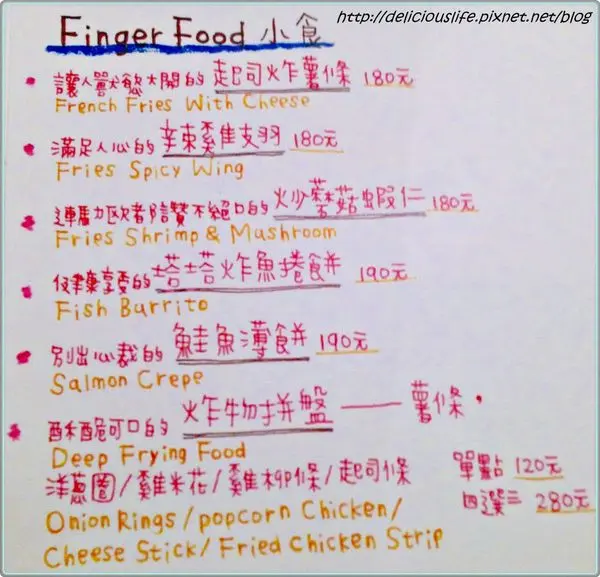 http://deliciouslife.pixnet.net/blog
Finger Food 小食
讓人獸慾大開的 起司炸薯條 180元
French Fries With Cheese
滿足人心的 辛辣雞翅 180元
Fries Spicy Wing
連馬力歐都讚不絕口的 炒蘑菇蝦仁 180元
Fries Shrimp & Mushroom
享受的 塔塔炸魚捲餅 190元
Fish Burrito
別出心裁的 鮭魚薄餅 190元
Salmon Crepe
酥脆可口的 炸物拼盤 —— 薯條,
Deep Frying Food
洋蔥圈/雞米花/雞柳條/起司條
單點 120元
Onion Rings / popcorn Chicken/
四選二 280元
Cheese Stick/ Fried Chicken Strip